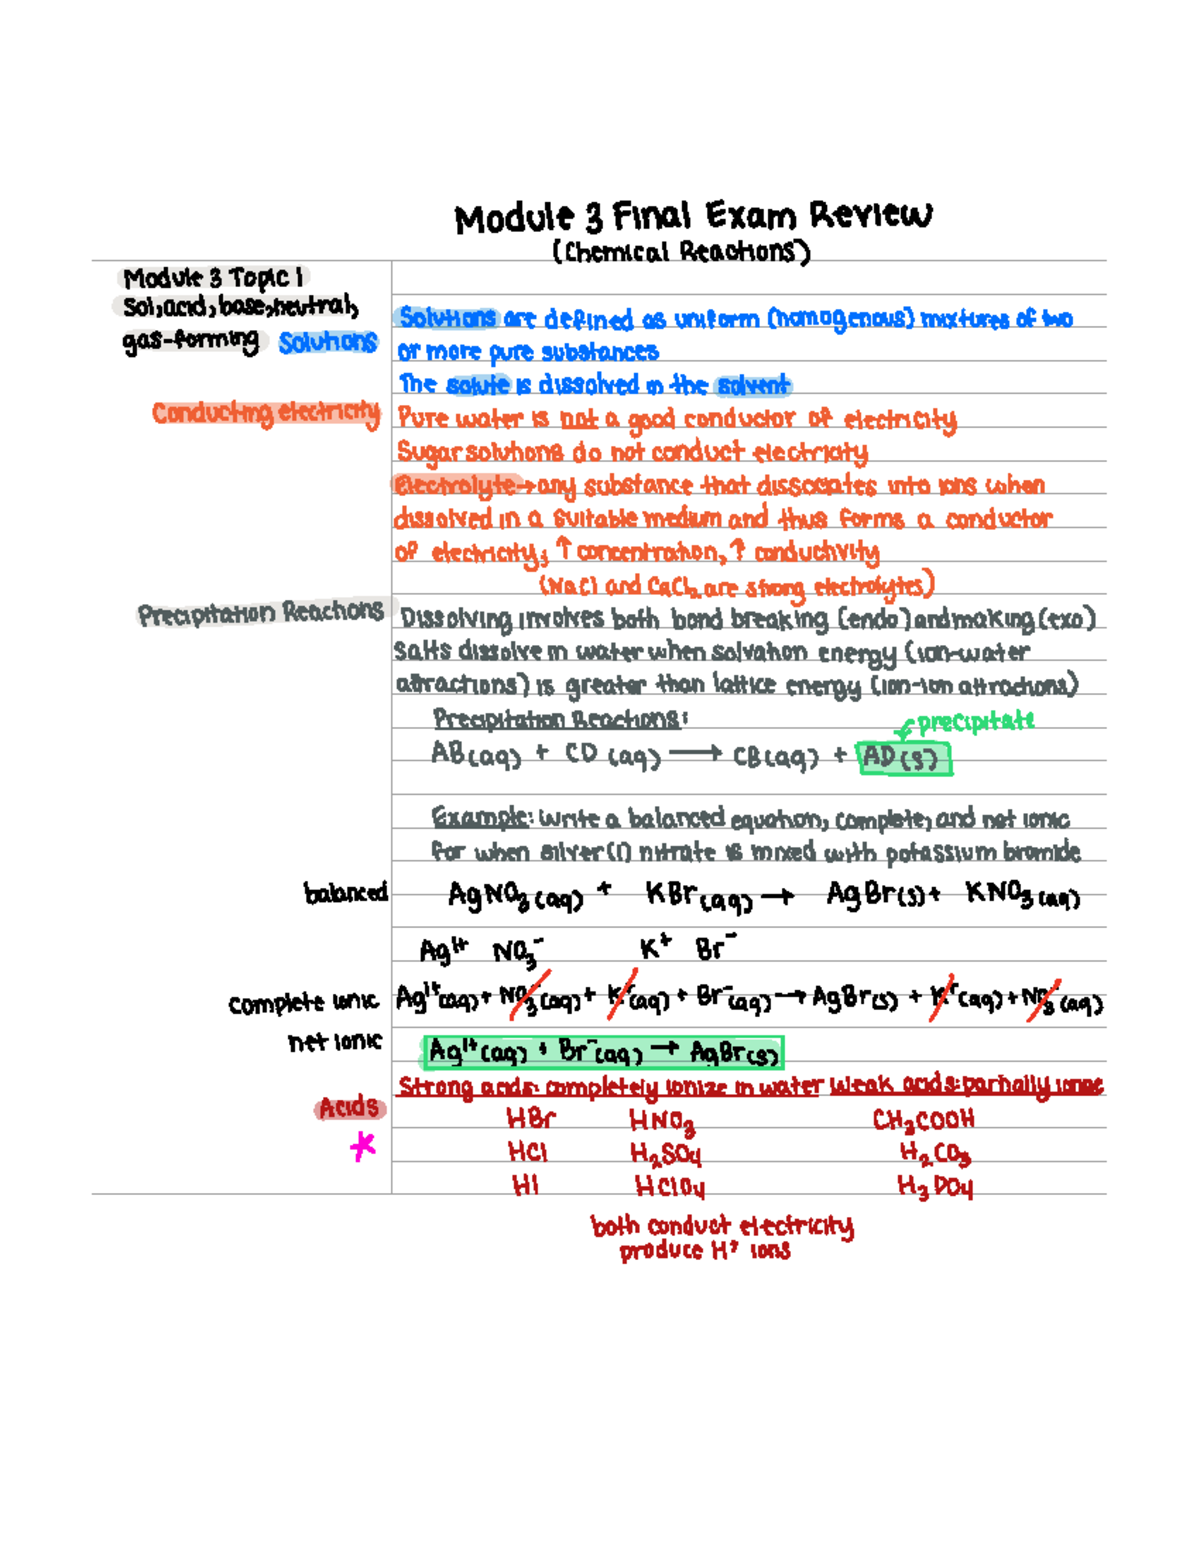 Module 3 Final Exam Review
(Chemical Reactions)
Module 3 Topic 1
Sol, acid, base, neutral,
gas-forming Solutions
Solutions are defined as uniform (homogenous) mixtures of two
or more pure substances
The solute is dissolved in the solvent
Conducting electricity
Pure water is not a good conductor of electricity
Sugar solutions do not conduct electricity
Electrolyte→any substance that dissociates into ions when
dissolved in a suitable medium and thus forms a conductor
of electricity; ↑ concentration, ↑ conductivity
(NaCl and CaCl₂ are strong electrolytes)
Precipitation Reactions
Dissolving involves both bond breaking (endo) and making (exo)
Salts dissolve in water when solvation energy (ion-water
attractions) is greater than lattice energy (ion-ion attractions)
Precipitation Reactions:
precipitate
AB(aq) + CD(aq) → CB(aq) + AD(s)
Example: Write a balanced equation, complete, and net ionic
for when silver(I) nitrate is mixed with potassium bromide
balanced
AgNO₃(aq) + KBr(aq) → AgBr(s) + KNO₃(aq)
Ag¹⁺ NO₃⁻ K⁺ Br⁻
complete ionic
Ag¹⁺(aq) + NO₃⁻(aq) + K⁺(aq) + Br⁻(aq) → AgBr(s) + K⁺(aq) + NO₃⁻(aq)
net ionic
Ag¹⁺(aq) + Br⁻(aq) → AgBr(s)
Strong acids: completely ionize in water Weak acids: partially ionize
Acids
HBr HNO₃ CH₃COOH
HCl H₂SO₄ H₂CO₃
HI HClO₄ H₃PO₄
both conduct electricity
produce H⁺ ions